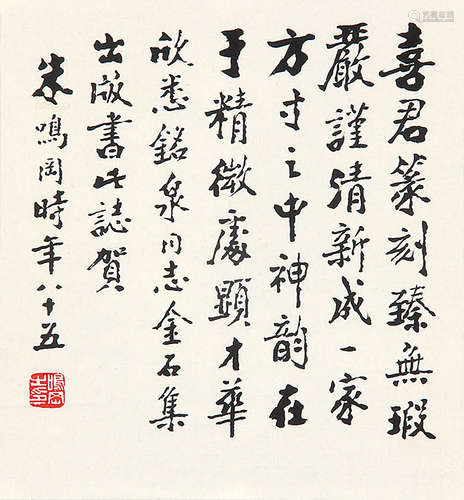 喜君篆刻臻無瑕
嚴謹清新成一家
方寸之中神韵在
于精微處顯才華
欣悉銘泉同志金石集
出版書此誌賀
朱鳴岡時年八十五